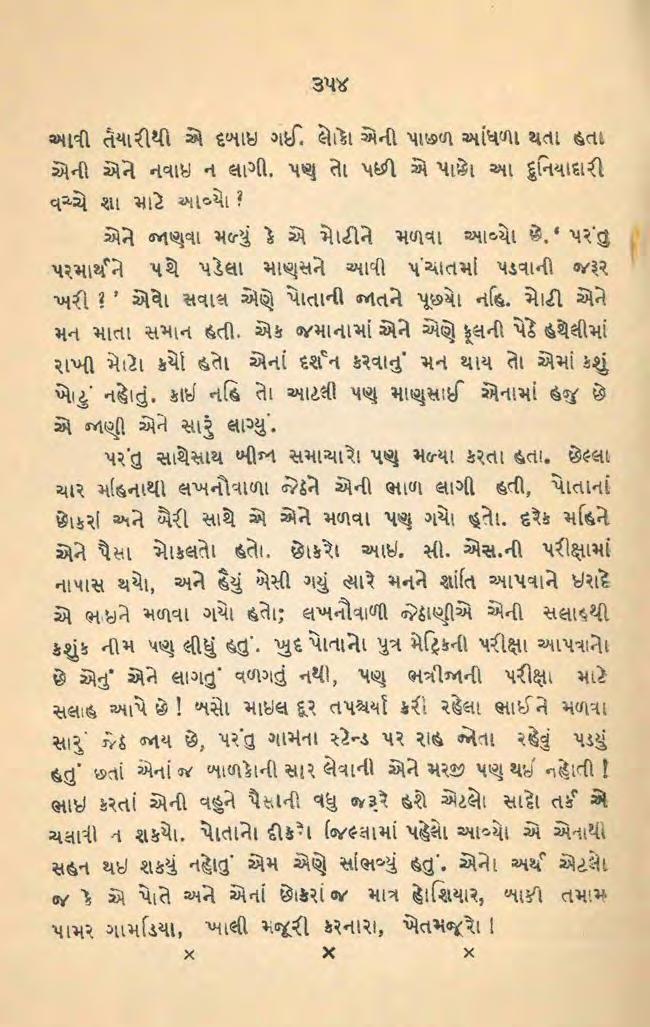 ૩૫૪
આવી તૈયારીથી એ દબાઇ ગઈ. લોકો એની પાછળ આંધળા થતા હતા
એની એને નવાઇ ન લાગી. પણ તો પછી એ પાછો આ દુનિયાદારી
વચ્ચે શા માટે આવ્યો ?
એને જાણવા મળ્યું કે એ મોટીને મળવા આવ્યો છે. ‘ પરંતુ
પરમાર્થને પથે પડેલા માણસને આવી પંચાતમાં પડવાની જરૂર
ખરી ? ’ એવો સવાલ એણે પોતાની જાતને પૂછ્યો નહિ. મોટી એને
મન માતા સમાન હતી. એક જમાનામાં એને એણે ફૂલની પેઠે હથેલીમાં
રાખી મોટો કર્યો હતો એનાં દર્શન કરવાનું મન થાય તો એમાં કશું
ખોટું નહોતું. કાઇ નહિ તો આટલી પણ માણસાઈ એનામાં હજુ છે
એ જાણી એને સારું લાગ્યું.
પરંતુ સાથેસાથ બીજા સમાચારો પણ મળ્યા કરતા હતા. છેલ્લા
ચાર મહિનાથી લખનૌવાળા જેઠને એની ભાળ લાગી હતી, પોતાનાં
છોકરાં અને બૈરી સાથે એ એને મળવા પણ ગયો હતો. દરેક મહિને
એને પૈસા મોકલતો હતો. છોકરો આઇ. સી. એસ.ની પરીક્ષામાં
નાપાસ થયો, અને હૈયું બેસી ગયું ત્યારે મનને શાંતિ આપવાને ઇરાદે
એ ભાઇને મળવા ગયો હતો; લખનૌવાળી જેઠાણીએ એની સલાહથી
કશુંક નીમ પણ લીધું હતું. ખુદ પોતાનો પુત્ર મેટ્રિકની પરીક્ષા આપવાનો
છે એનું એને લાગતું વળગતું નથી, પણ ભત્રીજાની પરીક્ષા માટે
સલાહ આપે છે ! બસો માઇલ દૂર તપશ્ચર્યા કરી રહેલા ભાઈને મળવા
સારું જેઠ જાય છે, પરંતુ ગામના સ્ટેન્ડ પર રાહ જોતા રહેવું પડયું
હતું છતાં એનાં જ બાળકોની સાર લેવાની એને મરજી પણ થઇ નહોતી !
ભાઇ કરતાં એની વહુને પૈસાની વધુ જરૂર હશે એટલો સાદો તર્ક એ
ચલાવી ન શકયો. પોતાનો દીકરો જિલ્લામાં પહેલો આવ્યો એ એનાથી
સહન થઇ શકયું નહોતું એમ એણે સાંભળ્યું હતું. એનો અર્થ એટલો
જ કે એ પોતે અને એનાં છોકરાં જ માત્ર હોશિયાર, બાકી તમામ
પામર ગામડિયા, ખાલી મજૂરી કરનારા, ખેતમજૂરો !
× × ×